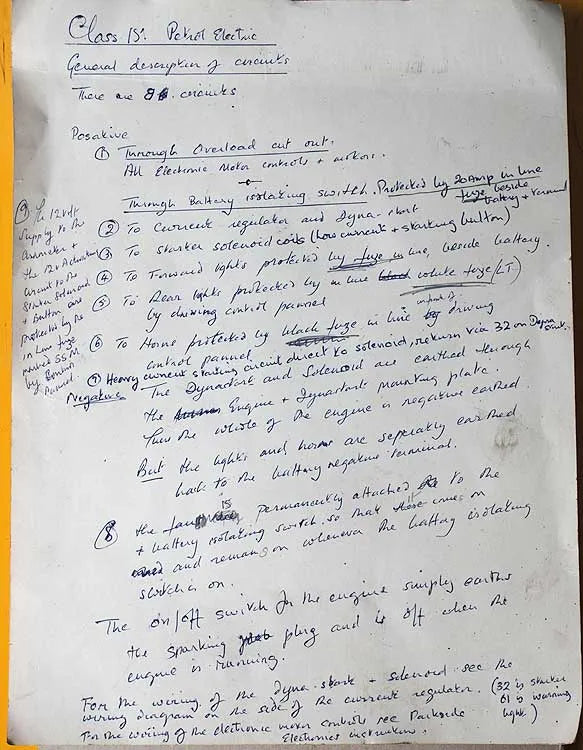 Class 15. Petrol Electric
General description of circuits
There are 8 circuits
Posative
① Through Overload cut out.
All Electronic Motor controls + motors.
Through Battery isolating switch. Protected by 20 Amp in line
fuze beside
battery + terminal
② To Current regulator and Dyna-start
③ To Starter solenoid coils (low current + starting button)
④ To Forward lights protected by fuze in line, beside battery.
⑤ To Rear lights protected by in line white fuze (LT)
by driving control pannel
⑥ To Horns protected by black fuze in line in front of driving
control pannel
⑦ Heavy current starting circuit direct to solenoid, return via 32 on Dyna start.
Negative The Dynastart and Solenoid are earthed through
the Engine + Dynastarts mounting plate.
Thus the whole of the engine is negative earthed.
But the lights and horns are seperatly earthed
back to the battery negative terminal.
⑧ the fan is permanently attached to the
+ battery isolating switch, so that it comes on
and remains on whenever the battery isolating
switch is on.
The on/off switch for the engine simply earths
the sparking plug and is off when the
engine is running.
For the wiring of the Dyna-start + solenoid see the
wiring diagram on the side of the current regulator. (32 is starter
61 is warning
light)
For the wiring of the electronic motor controls see Parkside
Electronics instruction.
⑨ The 12 volt
Supply to the
Ammeter +
the 12v Activation
circuit to the
Starter Solenoid
+ button are
protected by the
in line fuze
by
Pannel.